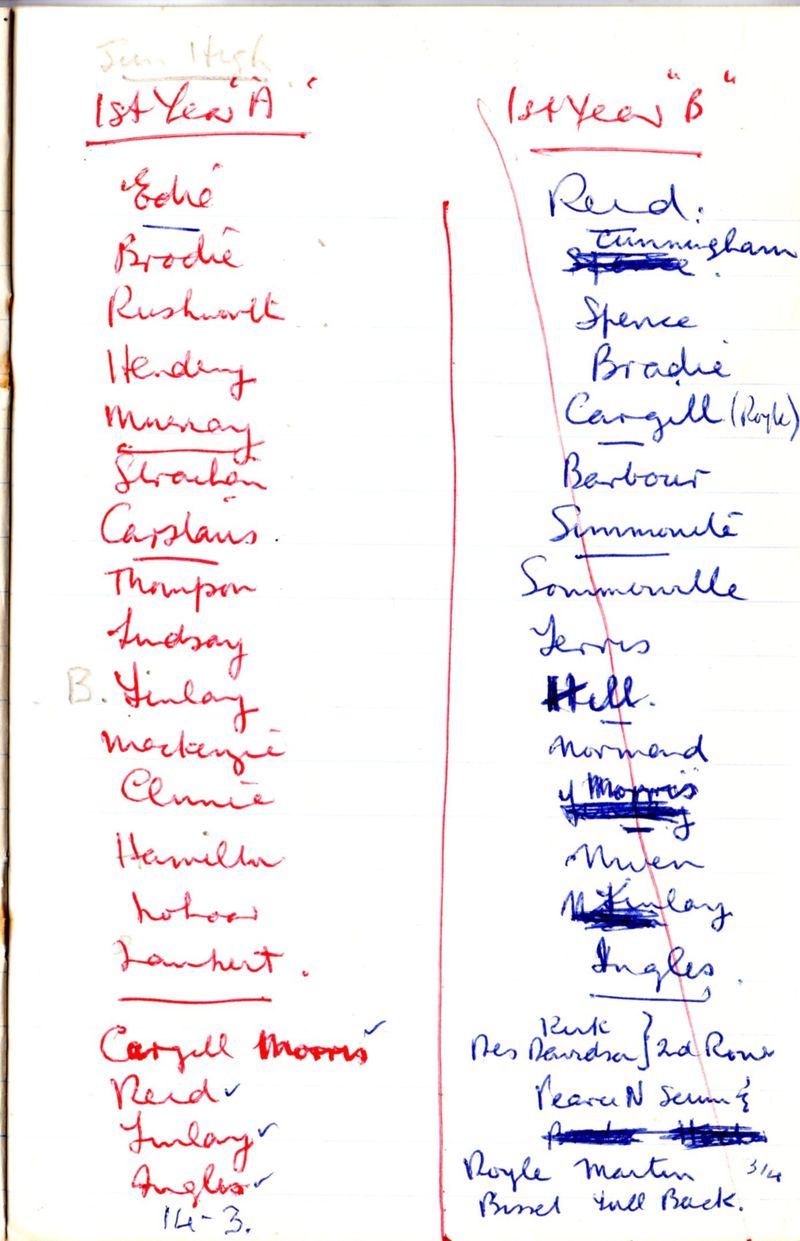 Jun High
1st Year "A"
Edie
Brodie
Rushworth
Hendry
Murray
Strachan
Carslaws
Thompson
Lindsay
B. Finlay
Mackenzie
Clunie
Hamilton
Lambert.
Cargill Morris ✓
Reid ✓
Finlay ✓
Ingles ✓
14-3.
1st Year "B"
Reid.
Cunningham
Spence.
Spence
Bradie
Cargill (Royle)
Barbour
Simmonite
Sommerville
Ferris
Hill.
Normand
Morris
Niven
McKinlay
Ingles.
Kirk
Res Davidson } 2nd Row
Pearce N Scrum ½
Royle Martin 3/4
Bisset Full Back.